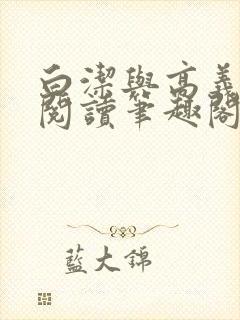 白潔與高義
閱讀筆趣閣
藍大錦